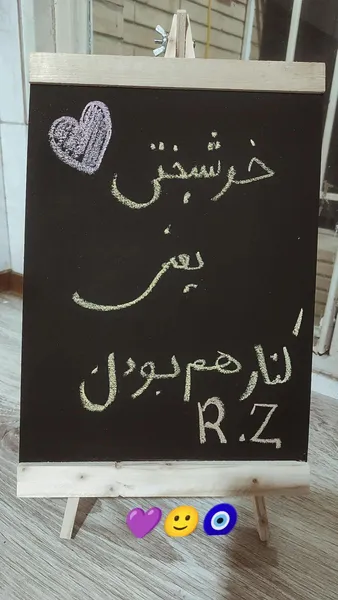 خوشبختی
یعنی
کنار هم بودن
R.Z